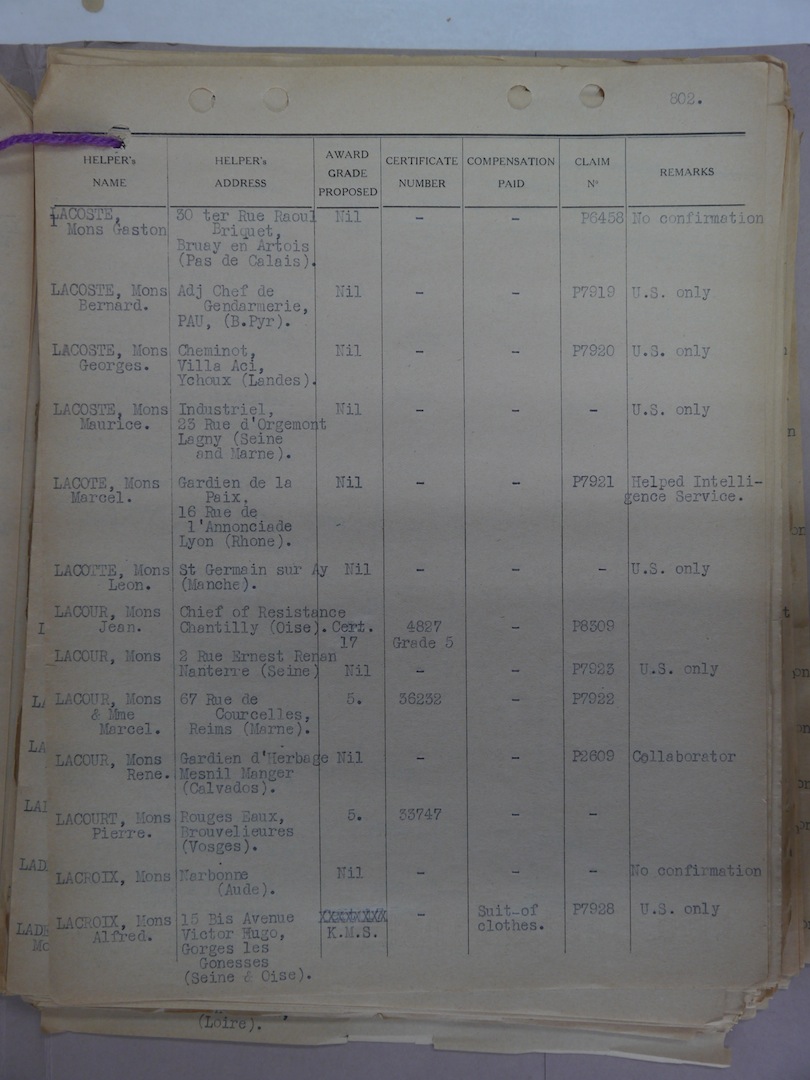 802.
HELPER's NAME | HELPER's ADDRESS | AWARD GRADE PROPOSED | CERTIFICATE NUMBER | COMPENSATION PAID | CLAIM Nº | REMARKS
LACOSTE, | 30 ter Rue Raoul | Nil | - | - | P6458 | No confirmation
Mons Gaston | Briquet,
Bruay en Artois
(Pas de Calais).
LACOSTE, Mons | Adj Chef de | Nil | - | - | P7919 | U.S. only
Bernard. | Gendarmerie,
PAU, (B.Pyr).
LACOSTE, Mons | Cheminot, | Nil | - | - | P7920 | U.S. only
Georges. | Villa Aci,
Ychoux (Landes).
LACOSTE, Mons | Industriel, | Nil | - | - | - | U.S. only
Maurice. | 23 Rue d'Orgemont
Lagny (Seine
and Marne).
LACOTE, Mons | Gardien de la | Nil | - | - | P7921 | Helped Intelli-
Marcel. | Paix, | gence Service.
16 Rue de
l'Annonciade
Lyon (Rhone).
LACOTTE, Mons | St Germain sur Ay | Nil | - | - | - | U.S. only
Leon. | (Manche).
LACOUR, Mons | Chief of Resistance
Jean. | Chantilly (Oise). | Cert. | 4827 | - | P8309
17 | Grade 5
LACOUR, Mons | 2 Rue Ernest Renan
Nanterre (Seine) | Nil | - | - | P7923 | U.S. only
LACOUR, Mons | 67 Rue de | 5. | 36232 | - | P7922
& Mme | Courcelles,
Marcel. | Reims (Marne).
LACOUR, Mons | Gardien d'Herbage | Nil | - | - | P2609 | Collaborator
Rene. | Mesnil Manger
(Calvados).
LACOURT, Mons | Rouges Eaux, | 5. | 33747 | - | -
Pierre. | Brouvelieures
(Vosges).
LACROIX, Mons | Narbonne | Nil | - | - | - | No confirmation
(Aude).
LACROIX, Mons | 15 Bis Avenue | - | Suit-of | P7928 | U.S. only
Alfred. | Victor Hugo, | K.M.S. | clothes.
Gorges les
Gonesses
(Seine & Oise).
(Loire).